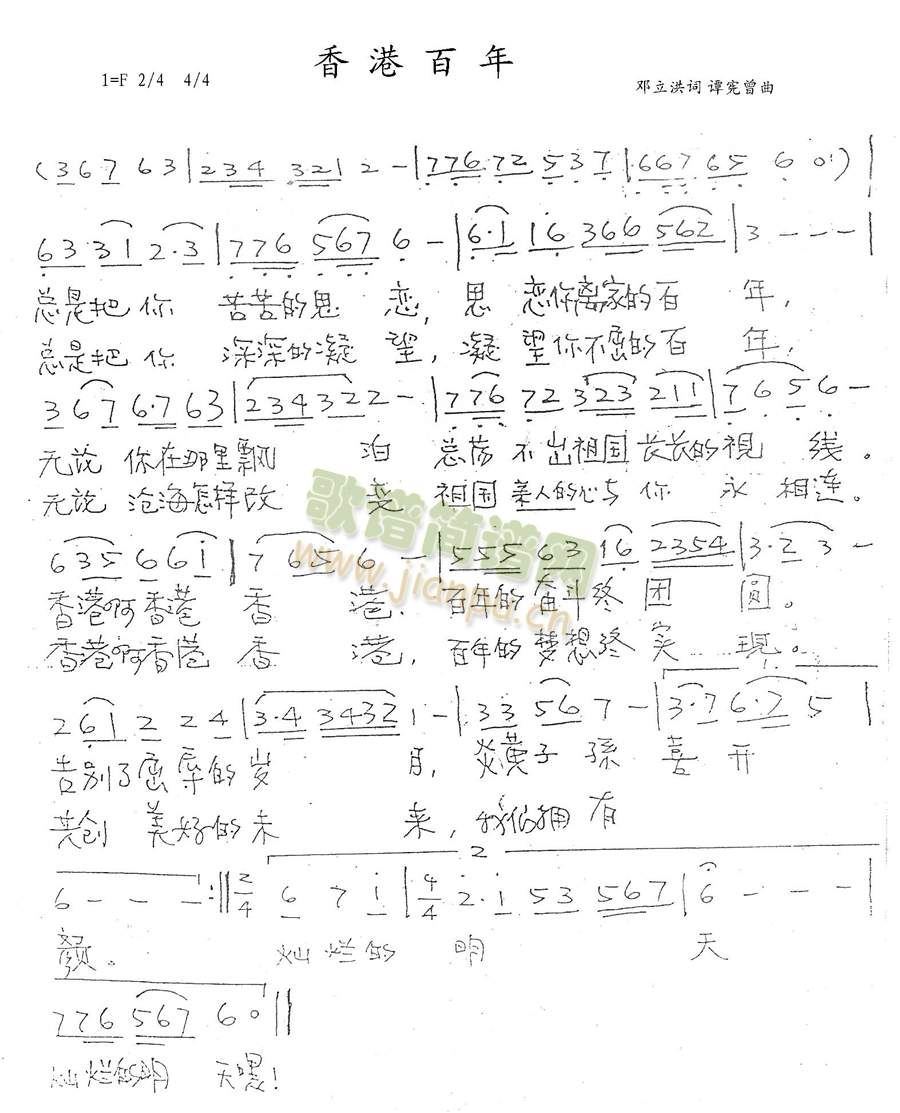 香港百年
1=F 2/4 4/4
邓立洪词 谭宪曾曲
(367 63|234 321 2 -|776 72 5 3 7|667 65 6 0)|
63·31 2·3|776 567 6 -|6·1 16 366 562|3 - - -|
总是把你 苦苦的思 恋,思 恋你离家的百 年,
总是把你 深深的凝 望,凝 望你不屈的百 年,
367 6·7 63|2343 2 2 -|776 72 323 211|7 6 5 6 -
无论 你在那里飘 泊 总荡 不出祖国长长的視 线。
无论 沧海怎样改 变 祖国亲人的心与 你 永 相连。
歌谱简谱网
www.jianpu.cn
635 6 6i|7 65 6 -|555 63 16 2354|3·2 3 -
香港啊香港 香 港.百年的奋斗终 团 圆。
香港啊香港 香 港,百年的梦想终 实 現。
2 61 2 2 4|3·4 3432 1 -|33 56 7 -|3·7 6·7 5|
告别了屈辱的岁 月,炎黄子 孫 喜 开
共创 美好的未 来,我们拥 有
2
6 - - -:‖2/4 6 7 i|4/4 2·i 53 567|6 - - -|
颜。 灿烂的 明 天
776 567 60‖
灿烂的明 天嘿!